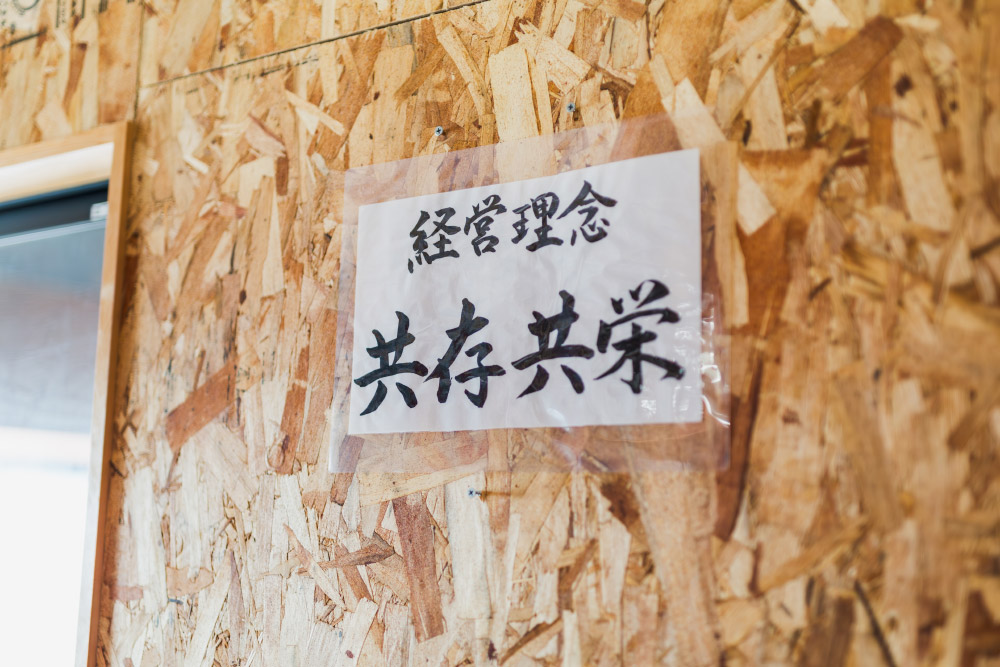 経営理念
共存共栄